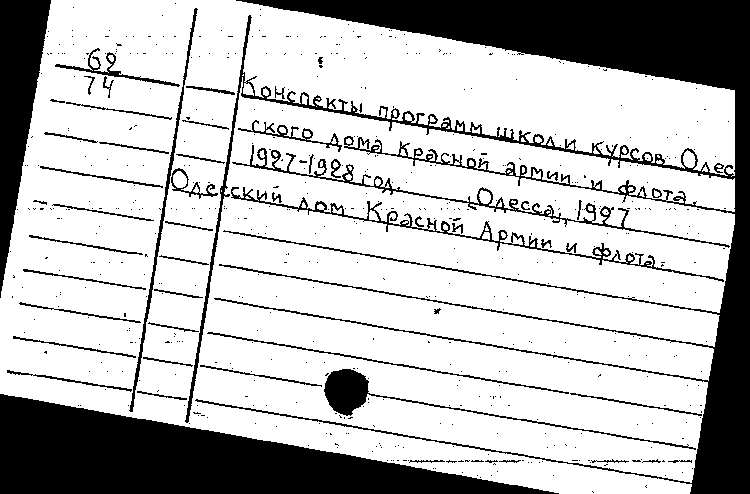 62
74
Конспекты программ школ и курсов Одес
ского дома красной армии и флота.
1927-1928 год. „Одесса„, 1927
Одесский дом Красной Армии и флота.